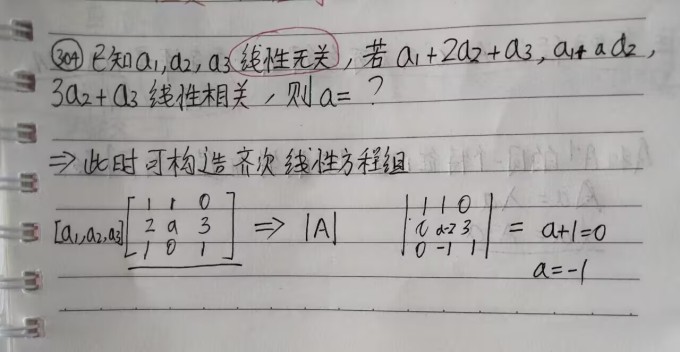 304 已知a1,a2,a3线性无关,若a1+2a2+a3,a1+aa2,
3a2+a3线性相关,则a=?
⇒此时可构造齐次线性方程组
[a1,a2,a3] [1 1 0 ⇒ |A| |1 1 0
2 a 3 a-2 3| = a+1=0
1 0 1] 0 -1 1|
a=-1